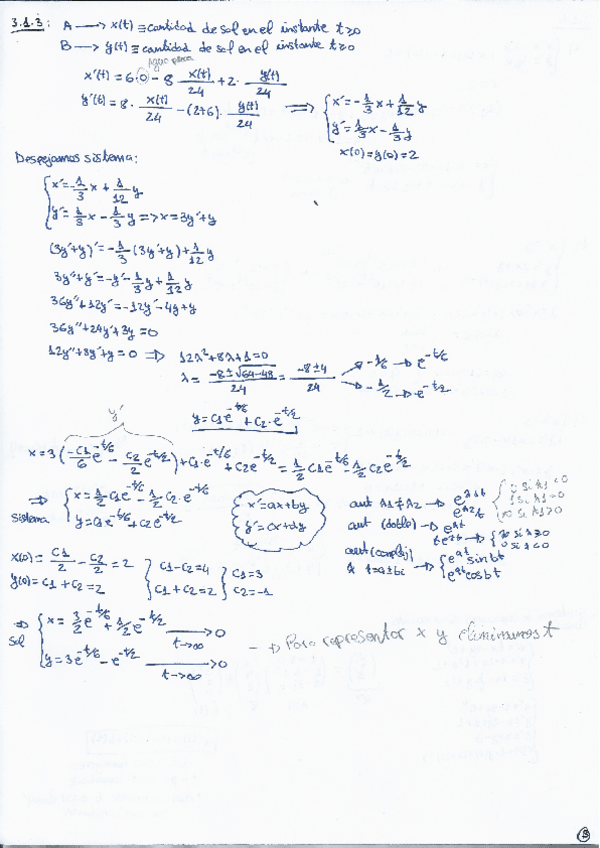 3.1.3: A → x(t) ≡ cantidad de sal en el instante t≥0
B → y(t) ≡ cantidad de sal en el instante t≥0
Agua pura
x'(t) = 6·0 - 8 · x(t)/24 + 2 · y(t)/24
y'(t) = 8 · x(t)/24 - (2+6) · y(t)/24 ⇒ { x' = -1/3 x + 1/12 y
y' = 1/3 x - 1/3 y
x(0) = y(0) = 2
Despejamos sistema:
{ x' = -1/3 x + 1/12 y
y' = 1/3 x - 1/3 y => x = 3y' + y
(3y'+y)' = -1/3 (3y'+y) + 1/12 y
3y'' + y' = -y' - 1/3 y + 1/12 y
36y'' + 12y' = -12y' - 4y + y
36y'' + 24y' + 3y = 0
12y'' + 8y' + y = 0 ⇒ 12λ² + 8λ + 1 = 0
λ = (-8 ± √(64-48))/24 = (-8 ± 4)/24 → -1/6 → e^(-t/6)
→ -1/2 → e^(-t/2)
y = C1 e^(-t/6) + C2 · e^(-t/2)
y'
x = 3 (-C1/6 e^(-t/6) - C2/2 e^(-t/2)) + C1 · e^(-t/6) + C2 e^(-t/2) = 1/2 C1 e^(-t/6) - 1/2 C2 e^(-t/2)
⇒ sistema { x = 1/2 C1 e^(-t/6) - 1/2 C2 · e^(-t/6)
y = C1 e^(-t/6) + C2 e^(-t/2)
x' = ax + by
y' = cx + dy
aut λ1 ≠ λ2 → e^(λ1 t)
e^(λ2 t)
aut (doble) → e^(λt)
t e^(λt)
→ { e^(at) sin bt
e^(at) cos bt
x(0) = C1/2 - C2/2 = 2 } C1 - C2 = 4 } C1 = 3
y(0) = C1 + C2 = 2 } C1 + C2 = 2 } C2 = -1
⇒ sol { x = 3/2 e^(-t/6) + 1/2 e^(-t/2) → 0
t→∞
y = 3e^(-t/6) - e^(-t/2) → 0
t→∞
→ Para representar x y eliminamos t
3